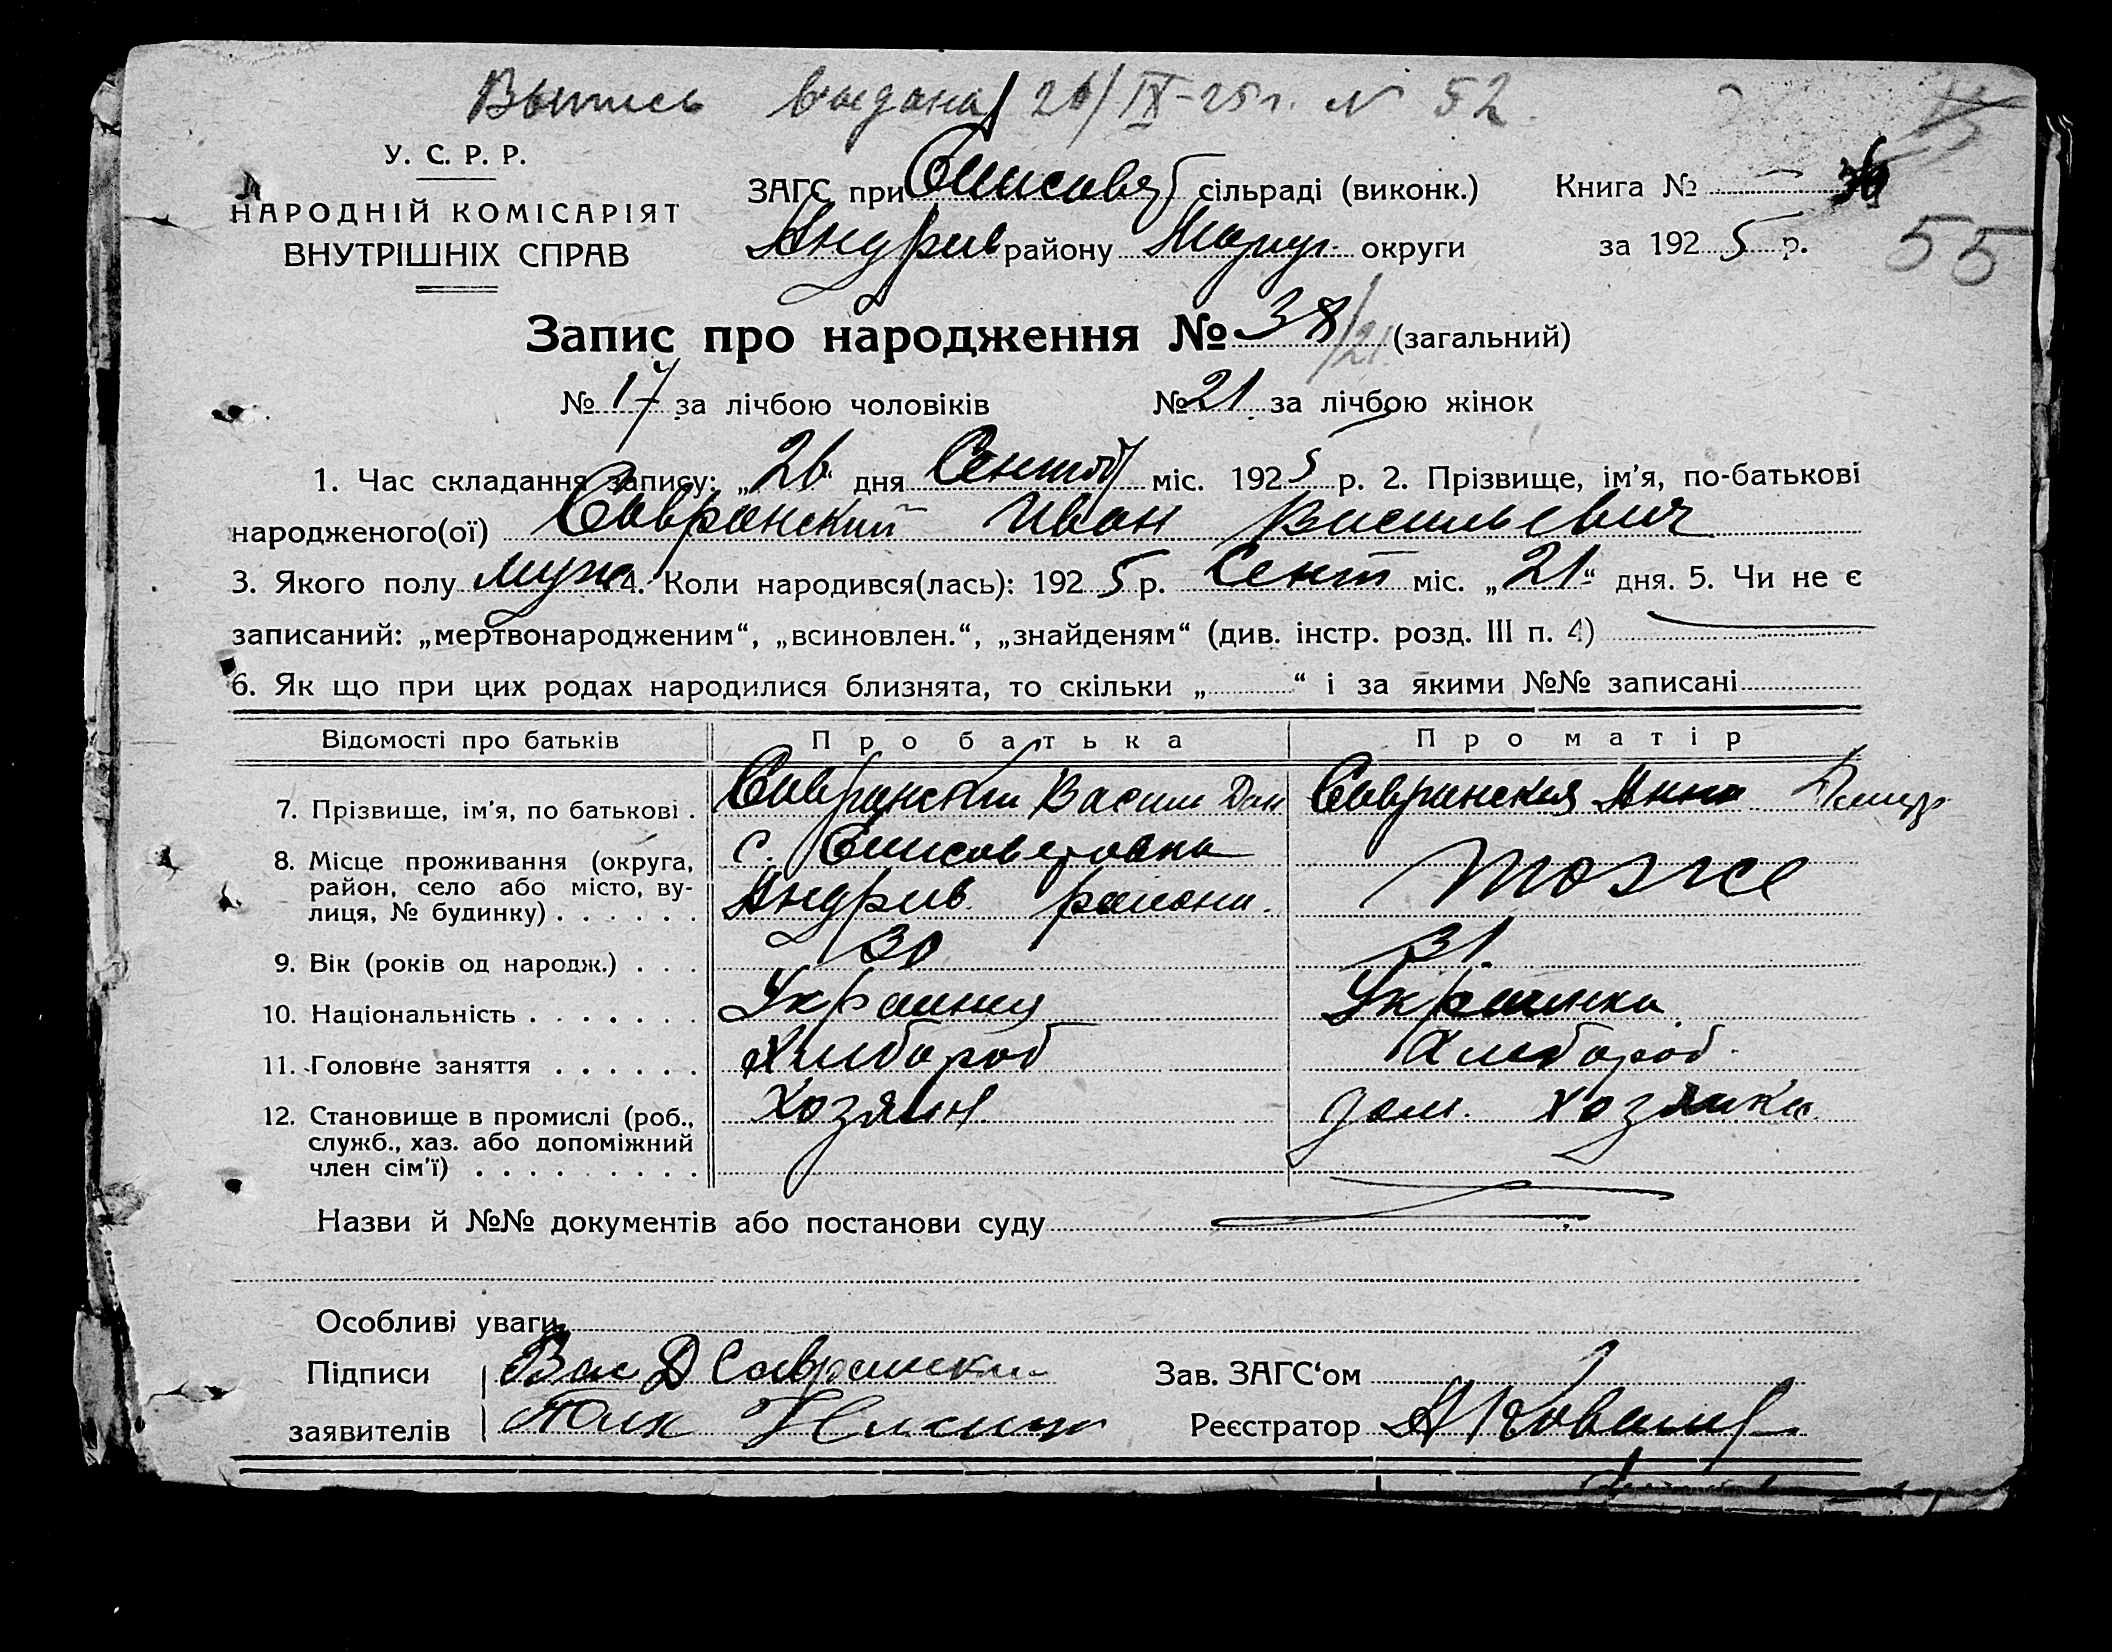 Выпись выдана 26/IX-25 г. № 52.
У. С. Р. Р.
НАРОДНІЙ КОМІСАРІЯТ
ВНУТРІШНІХ СПРАВ
ЗАГС при Елисавет сільраді (виконк.) Книга №
Андрив району Мариуп. округи за 1925 р.
55
Запис про народження № 38/21 (загальний)
№ 17 за лічбою чоловіків № 21 за лічбою жінок
1. Час складання запису: „26“ дня Сентяб міс. 1925 р. 2. Прізвище, ім’я, по-батькові
народженого(ої) Савранский Иван Васильевич
3. Якого полу муж 4. Коли народився(лась): 1925 р. Сент міс. „21“ дня. 5. Чи не є
записаний: „мертвонародженим“, „всиновлен.“, „знайденям“ (див. інстр. розд. III п. 4)
6. Як що при цих родах народилися близнята, то скільки „ “ і за якими №№ записані
Відомості про батьків Про батька Про матір
7. Прізвище, ім’я, по батькові . Савранский Васили Дан Савранская Анна
8. Місце проживання (округа, с. Елисаветовка
район, село або місто, ву- Андрив района. тоже
лиця, № будинку) . . . . . .
9. Вік (років од народж.) . . . 30 31.
10. Національність . . . . . . . Украинец Украинка
11. Головне заняття . . . . . . Хлебороб Хлебороб.
12. Становище в промислі (роб., Хозяин. дом. хозяйка
служб., хаз. або допоміжний
член сім’ї) . . . . . . . . .
Назви й №№ документів або постанови суду
Особливі уваги
Підписи Вас Д Саврански Зав. ЗАГС‘ом
заявителів Реєстратор А Ковалев